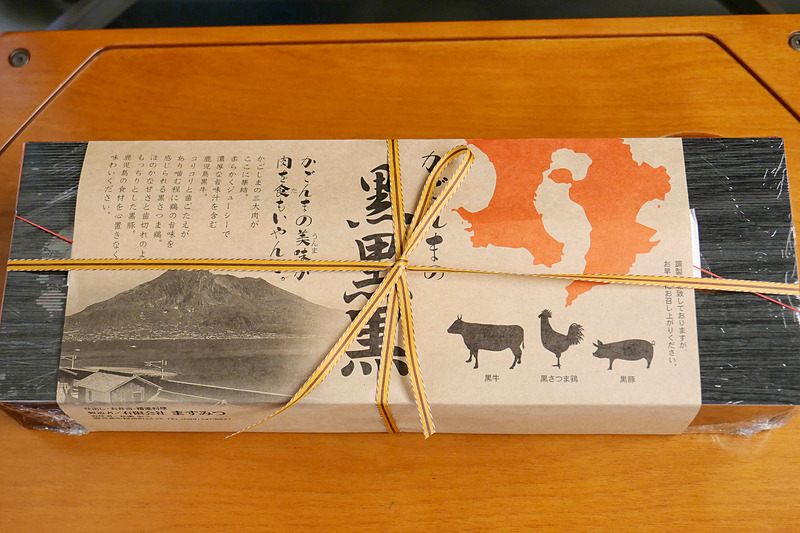 調製 致しておりますが、
お早 にお召し上がりください。
かごんまの
黒黒黒
かごんまの美味か
うんま
肉を食もいやんせ。
かごしまの三大肉が
ここに集結。
柔らかくジューシーで
濃厚な旨味汁を含む
鹿児島黒牛。
コリコリと歯ごたえが
あり噛む程に鶏の旨味を
感じられる黒さつま鶏。
ほのかな甘さと歯切れのよ
もっちりとした黒豚。
鹿児島の食材を心置きなく
味わいください。
黒牛
黒さつま鶏
黒豚
仕出し・お弁当・精進料理
製造者/有限会社 ますみつ